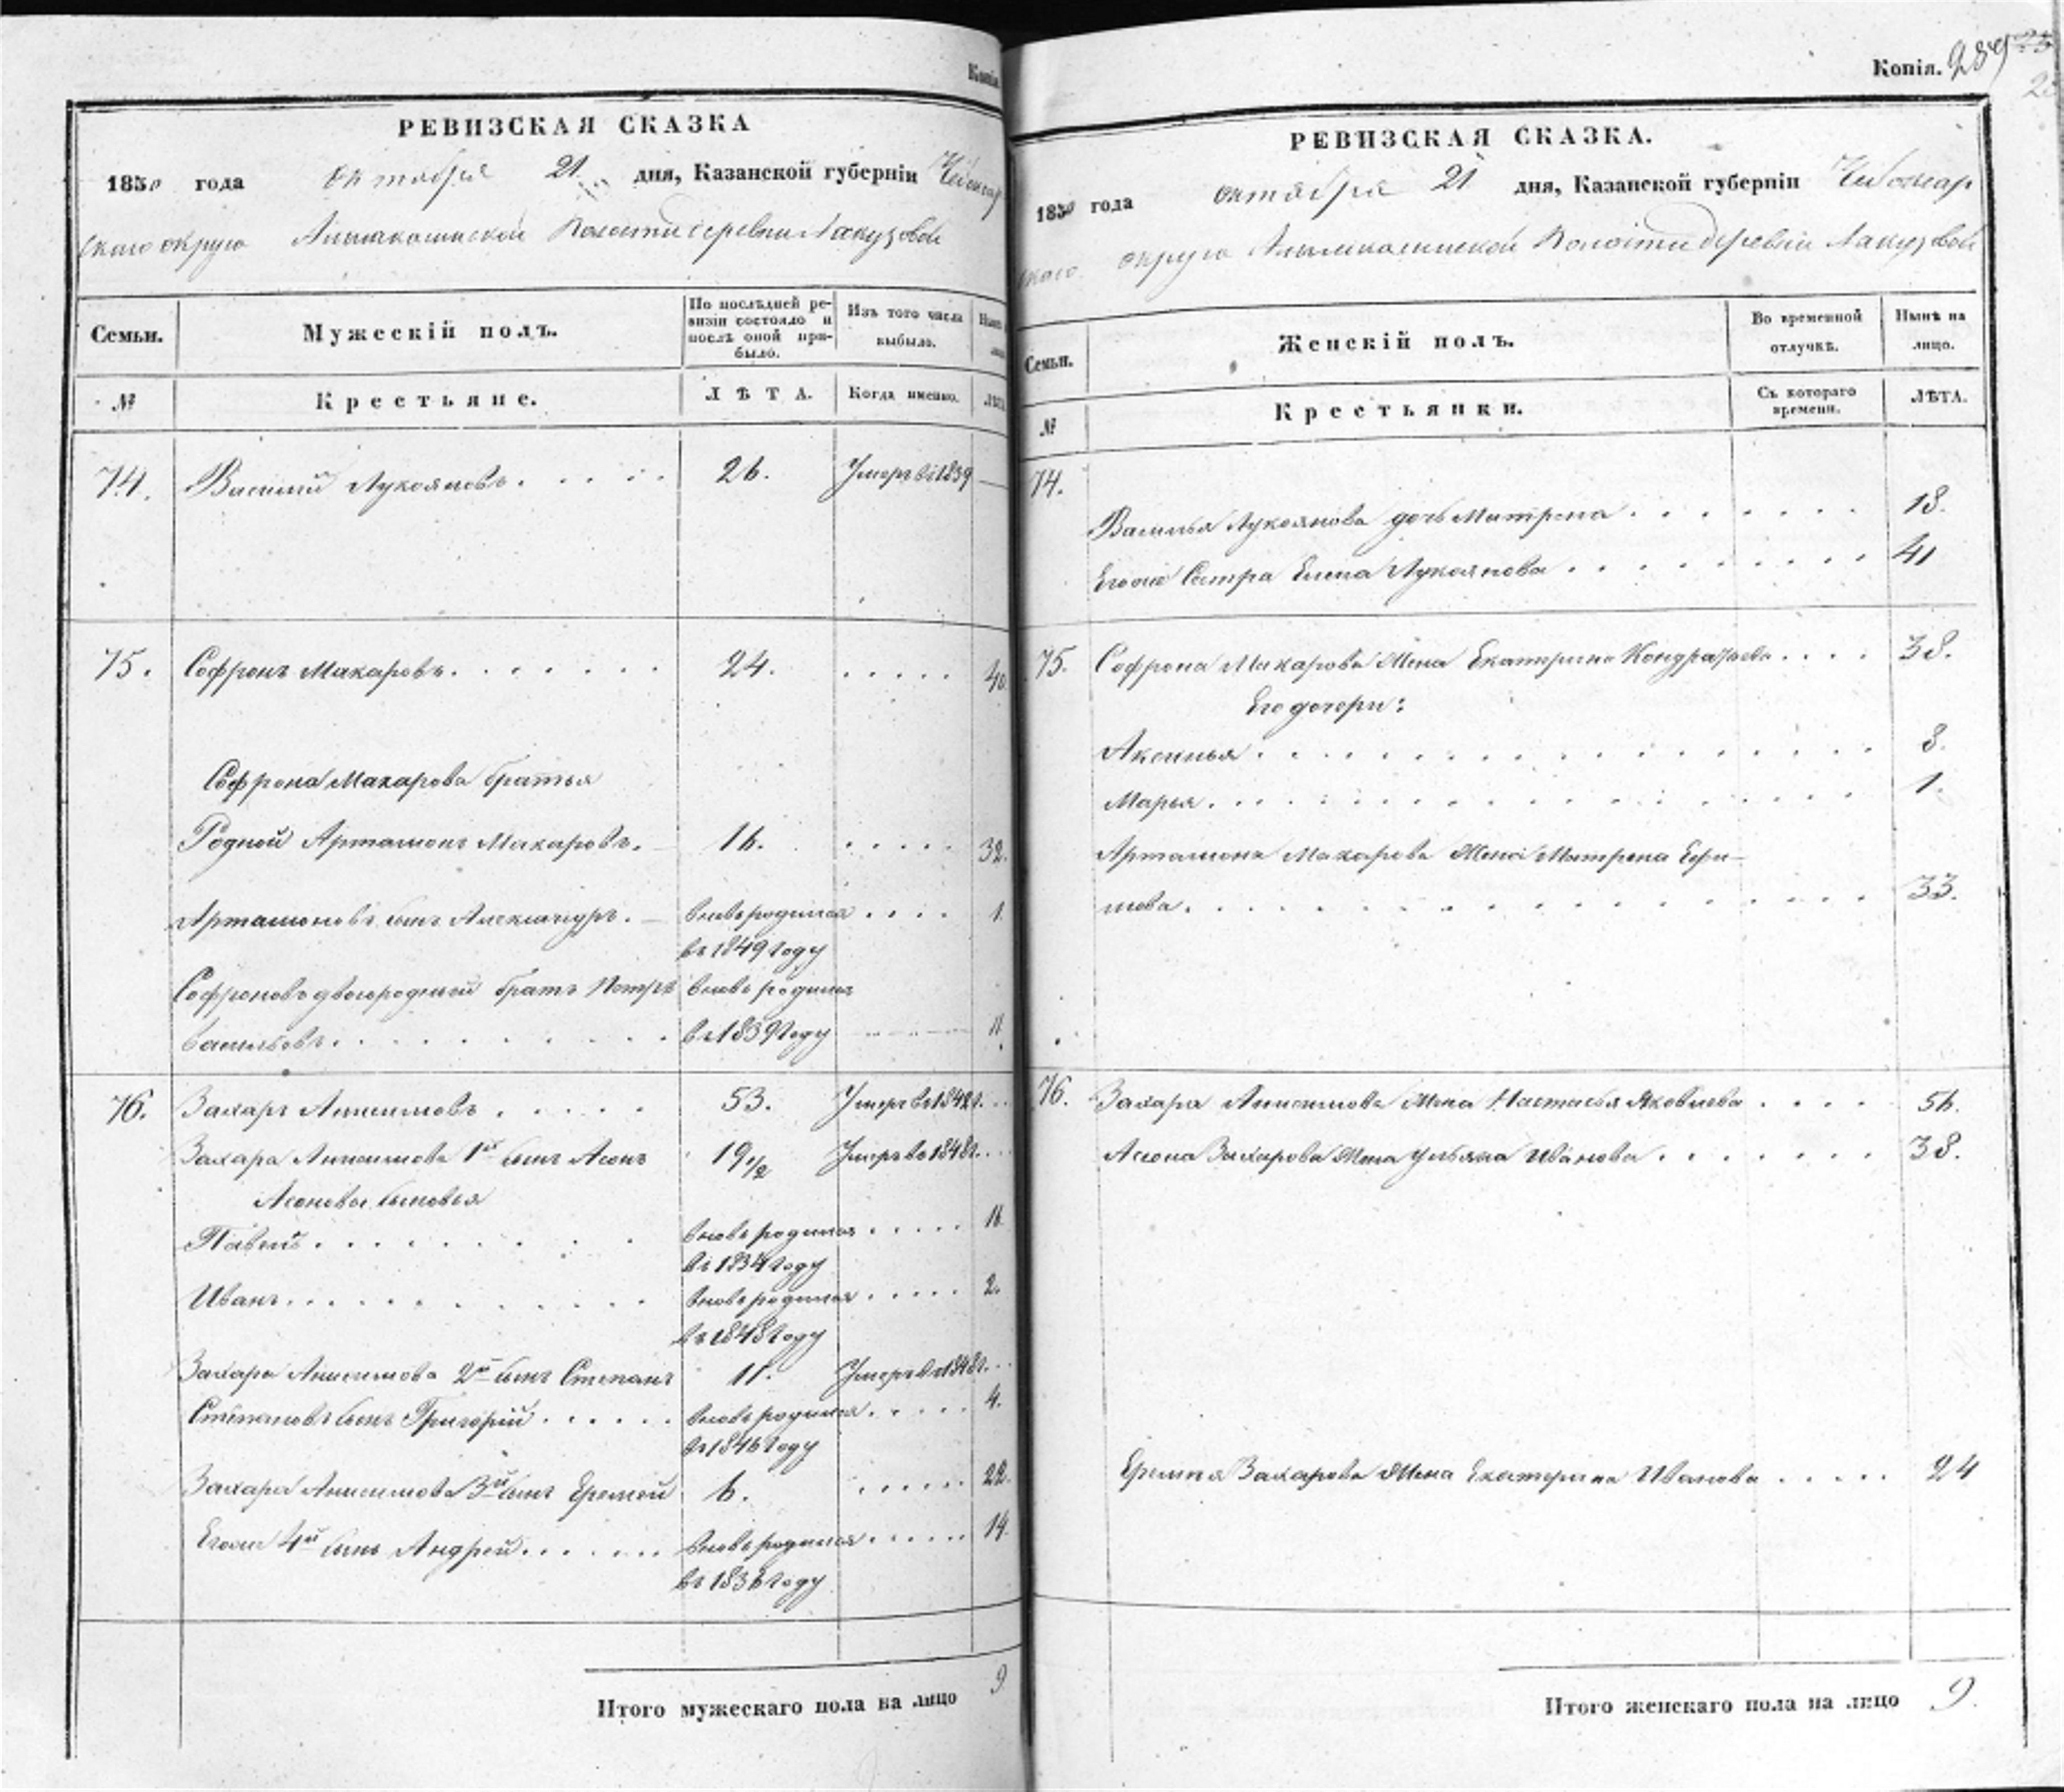 Копія
РЕВИЗСКАЯ СКАЗКА
1850 года октября 21 дня, Казанской губерніи Чебоксар
скаго округа Алымкасинской Волости деревни Лакузовой
Семьи.
Мужескій полъ.
По послѣдней ре-
визіи состояло и
послѣ оной при-
было.
Изъ того числа
выбыло.
№
Крестьяне.
ЛѢТА.
Когда именно.
74. Василий Лукояновъ. 26. Умеръ въ 1839
75. Софронъ Макаровъ. 24. 40
Софрона Макарова братья
Родной Артамонъ Макаровъ. 16. 32.
Артамоновъ сынъ Александръ. вновь родился 1
въ 1849 году
Софроновъ двоюродный братъ Петръ вновь родился
Васильевъ. въ 1839 году 11
76. Захаръ Анисимовъ. 53. Умеръ въ 1842 г.
Захара Анисимова 1й сынъ Асонъ 19 1/2 Умеръ въ 1848 г.
Асоновы сыновья
Павелъ. вновь родился 16
въ 1834 году
Иванъ. вновь родился 2.
въ 1848 году
Захара Анисимова 2й сынъ Степанъ 11. Умеръ въ 1848 г.
Степановъ сынъ Григорій. вновь родился 4.
въ 1846 году
Захара Анисимова 3й сынъ Еремей 6. 22.
Егоже 4й сынъ Андрей. вновь родился 14
въ 1836 году
Итого мужескаго пола на лицо 9
Копія. 289
РЕВИЗСКАЯ СКАЗКА.
1850 года октября 21 дня, Казанской губерніи Чебоксар
скаго округа Алымкасинской Волости деревни Лакузовой
Семьи.
Женскій полъ.
Во временной
отлучкѣ.
Нынѣ на
лицо.
№
Крестьянки.
Съ котораго
времени.
ЛѢТА.
74.
Василья Лукоянова дочь Матрена 18.
Егоже Сестра Елена Лукоянова 41
75. Софрона Макарова Жена Екатерина Кондратьева 38.
Его дочери:
Аксинья 8.
Марья 1.
Артамона Макарова Жена Матрена Ефи-
мова. 33.
76. Захара Анисимова Жена Настасья Яковлева 56.
Асона Захарова Жена Ульяна Иванова 38.
Еремея Захарова Жена Екатерина Иванова 24
Итого женскаго пола на лицо 9.